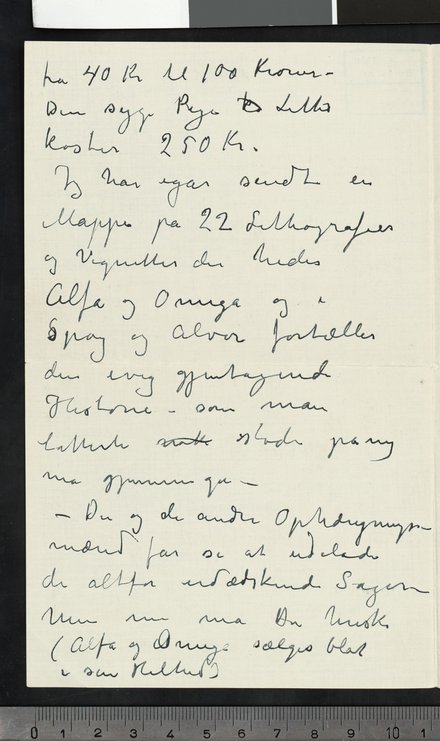 fra 40 Kr til 100 Kroner –
Den syge Pige Litho
koster 250 Kr.
Jeg har igår sendt en
Mappe på 22 Lithografier
og Vignetter der hedes
Alfa og Omega og i
Spøg og Alvor fortæller
den evig gjentagende
Historie – som man
stade påny
må gjennemgå –
– Du og de andre Ophængnings-
mænd får se at udelade
de altfor udæskende Sager
Men nu må Du huske
(Alfa og Omega sælges blot
i sin Helhed)
0 1 2 3 4 5 6 7 8 9 10 1